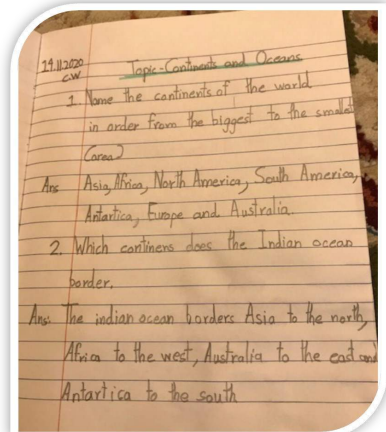 19.11.2020
CW
Topic-Continents and Oceans
1. Name the continents of the world
in order from the biggest to the smallest
(area)
Ans Asia, Africa, North America, South America,
Antartica, Europe and Australia.
2. Which continens does the Indian ocean
border.
Ans: The indian ocean borders Asia to the north,
Africa to the west, Australia to the east and
Antartica to the south